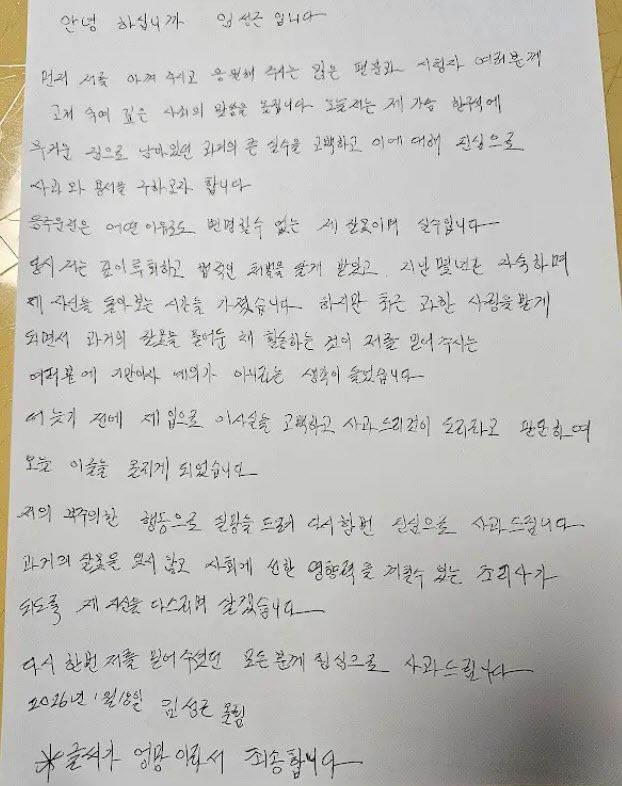 안녕 하십니까 임성근 입니다
먼저 저를 아껴 주시고 응원해 주시는 많은 팬분과 시청자 여러분께
고개 숙여 깊은 사죄의 말씀을 올립니다 오늘 저는 제 가슴 한구석에
무거운 짐으로 남아있던 과거의 큰 실수을 고백하고 이에 대해 진심으로
사과와 용서을 구하고자 합니다
음주운전은 어떤 이유로도 변명할수 없는 제 잘못이며 실수입니다
당시 저는 깊이 후회하고 법적인 처벌을 달게 받았고, 지난 몇년간 자숙하며
제 자신을 돌아보는 시간을 가졌습니다 하지만 최근 과한 사랑을 받게
되면서 과거의 잘못을 묻어둔 채 활동하는 것이 저를 믿어 주시는
여러분에 기만이자 예의가 아니라는 생각이 들었습니다
더 늦기 전에 제 입으로 이사실을 고백하고 사과 드리것이 도리라고 판단하여
오늘 이글을 올리게 되었습니다
저의 부주의한 행동으로 실망을 드려 다시한번 진심으로 사과드립니다
과거의 잘못을 잊지 않고 사회에 선한 영향력을 끼칠수 있는 조리사가
되도록 제 자신을 다스리며 살겠습니다
다시 한번 저를 믿어 주셨던 모든분께 진심으로 사과드립니다
2026년 1월18일 임성근 올림
※글씨가 엉망이라서 죄송합니다